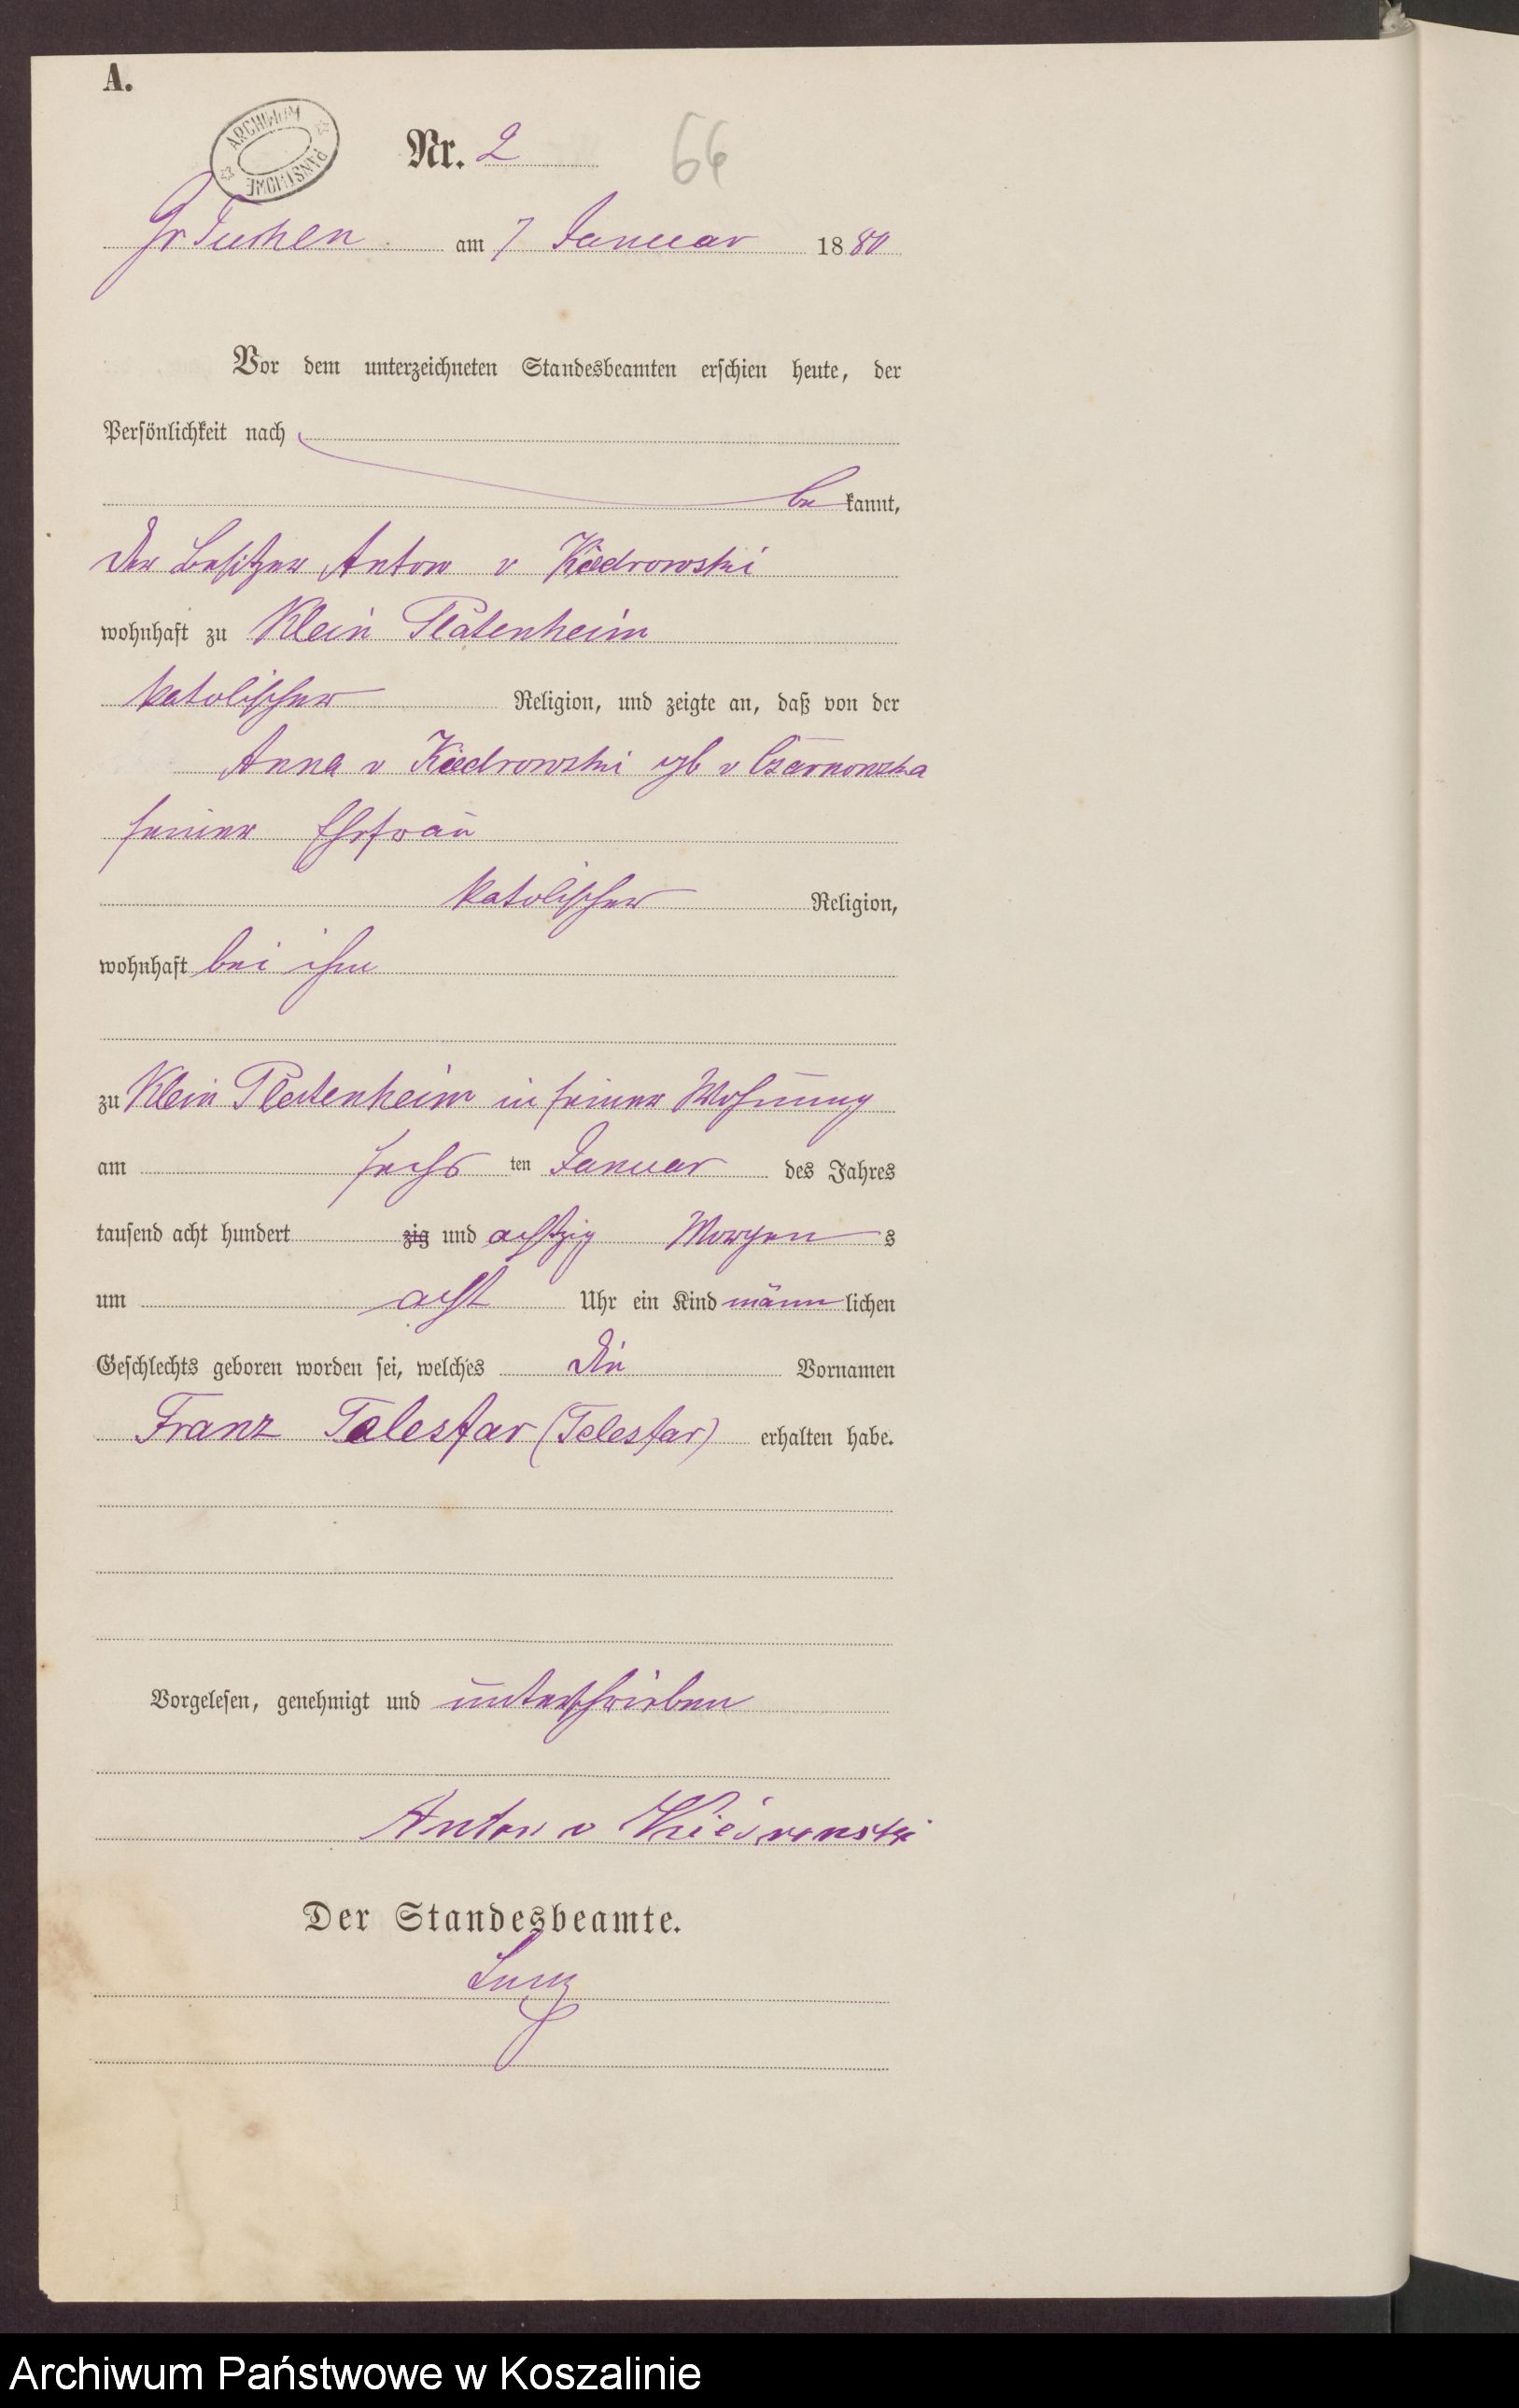 A.
ARCHIWUM PAŃSTWOWE
Nr. 2
66
Gr Tuchen am 7 Januar 1880
Vor dem unterzeichneten Standesbeamten erschien heute, der
Persönlichkeit nach
be kannt,
der Besitzer Anton v Kiedrowski
wohnhaft zu Klein Platenheim
katolischer Religion, und zeigte an, daß von der
Anna v Kiedrowski geb v Czarnowska
seiner Ehefrau
katolischer Religion,
wohnhaft bei ihm
zu Klein Platenheim in seiner Wohnung
am sechs ten Januar des Jahres
tausend acht hundert zig und achtzig Morgen s
um acht Uhr ein Kind männ lichen
Geschlechts geboren worden sei, welches die Vornamen
Franz Telesfar (Telesfar) erhalten habe.
Vorgelesen, genehmigt und unterschrieben
Anton v Kiedrowski
Der Standesbeamte.
Archiwum Państwowe w Koszalinie